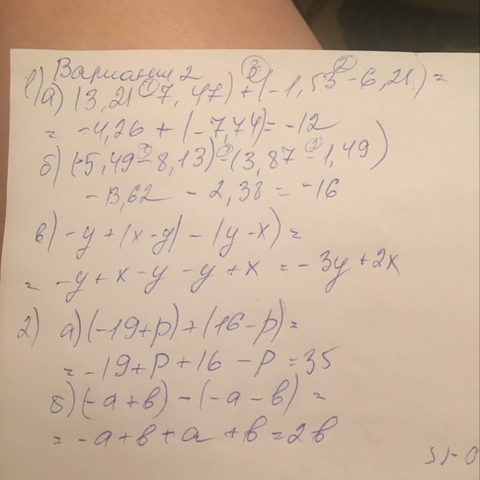 Вариант 2
1) а) (3,21 - 7,47) + (-1,53 - 6,21) =
= -4,26 + (-7,74) = -12
б) (-5,49 - 8,13) - (3,87 - 1,49)
-13,62 - 2,38 = -16
в) -y + (x-y) - (y-x) =
= -y + x - y - y + x = -3y + 2x
2) а) (-19+p) + (16-p) =
= -19+p+16-p = 35
б) (-a+в) - (-a-в) =
= -a+в+a+в = 2в